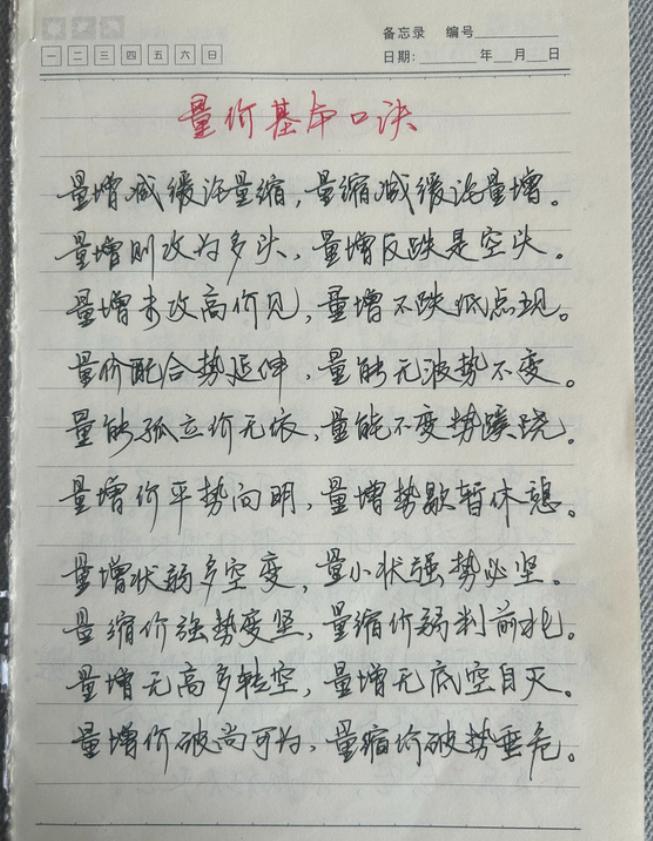 备忘录 编号
一 二 三 四 五 六 日
日期: 年 月 日
量价基本口诀
量增减缓注量缩，量缩减缓注量增。
量增则改为多头，量增反跌是空头。
量增未改高价见，量增不跌低点现。
量价配合势延伸，量能无波势不变。
量能孤立价无依，量能不变势蹊跷。
量增价平势向明，量增势歇暂休憩。
量增状弱多空变，量小状强势必坚。
量缩价强势变坚，量缩价弱判前兆。
量增无高多转空，量增无底空自灭。
量增价破尚可为，量缩价破势垂危。